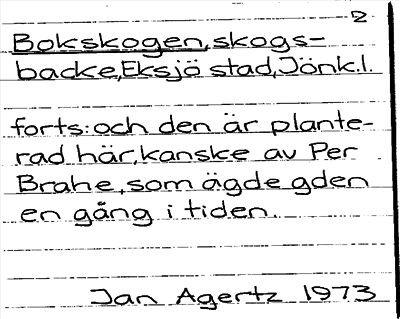 2
Bokskogen, skogs-
backe, Eksjö stad, Jönk.l.
forts: och den är plante-
rad här, kanske av Per
Brahe, som ägde gden
en gång i tiden.
Jan Agertz 1973